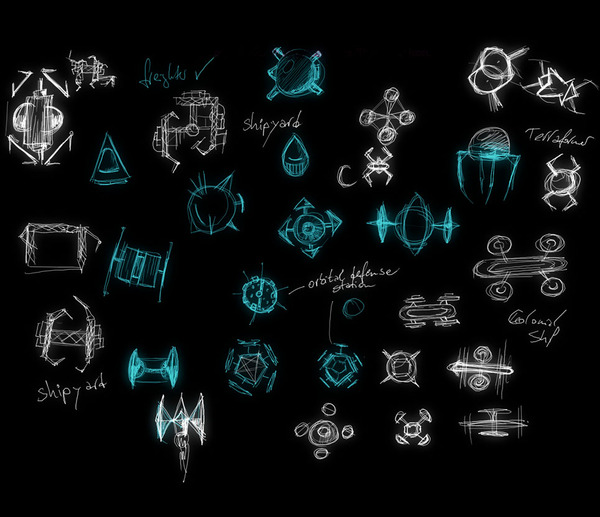 freighter ✓
shipyard
Terraformer
orbital defense
station
Colonial
Ship
shipyard